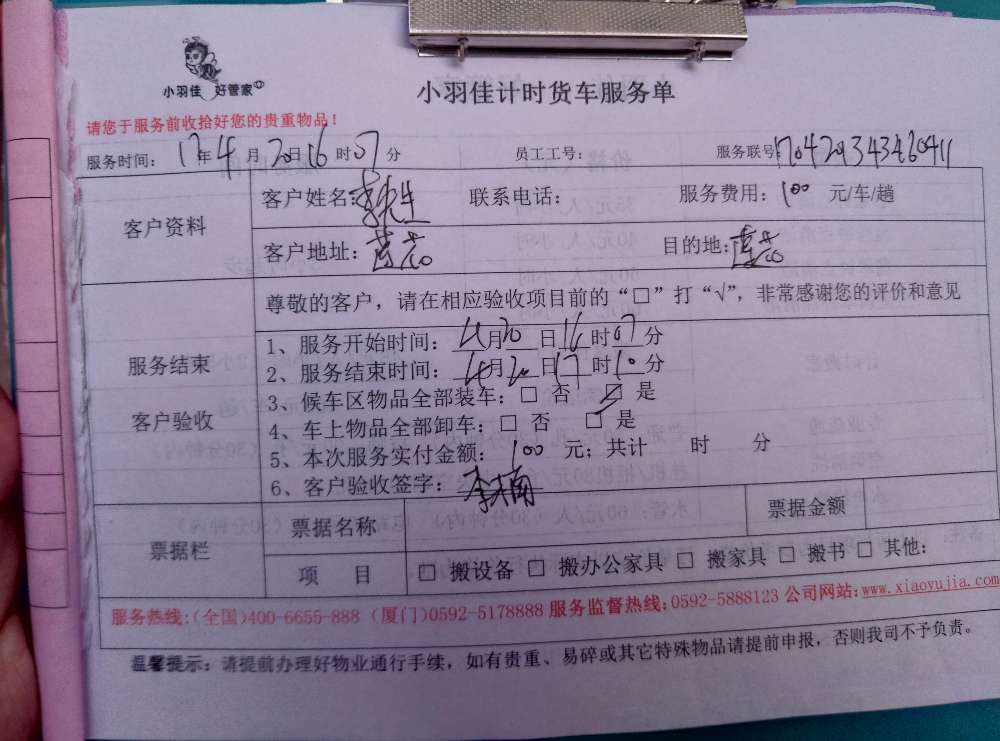 小羽佳 好管家
小羽佳计时货车服务单
请您于服务前收拾好您的贵重物品！
服务时间： 17年4月20日16时07分 员工工号： 服务联号：
客户资料
客户姓名：李先生 联系电话： 服务费用：100 元/车/趟
客户地址：莲花 目的地：莲花
尊敬的客户，请在相应验收项目前的“□”打“√”，非常感谢您的评价和意见
服务结束
客户验收
1、服务开始时间：4月20日16时07分
2、服务结束时间：4月20日17时10分
3、候车区物品全部装车：□ 否 ☑ 是
4、车上物品全部卸车：□ 否 ☑ 是
5、本次服务实付金额：100 元；共计 时 分
6、客户验收签字：
票据栏
票据名称 票据金额
项 目 □ 搬设备 □ 搬办公家具 □ 搬家具 □ 搬书 □ 其他：
服务热线：(全国)400-6655-888 (厦门)0592-5178888 服务监督热线：0592-5888123 公司网站：www.xiaoyujia.com
温馨提示：请提前办理好物业通行手续，如有贵重、易碎或其它特殊物品请提前申报，否则我司不予负责。